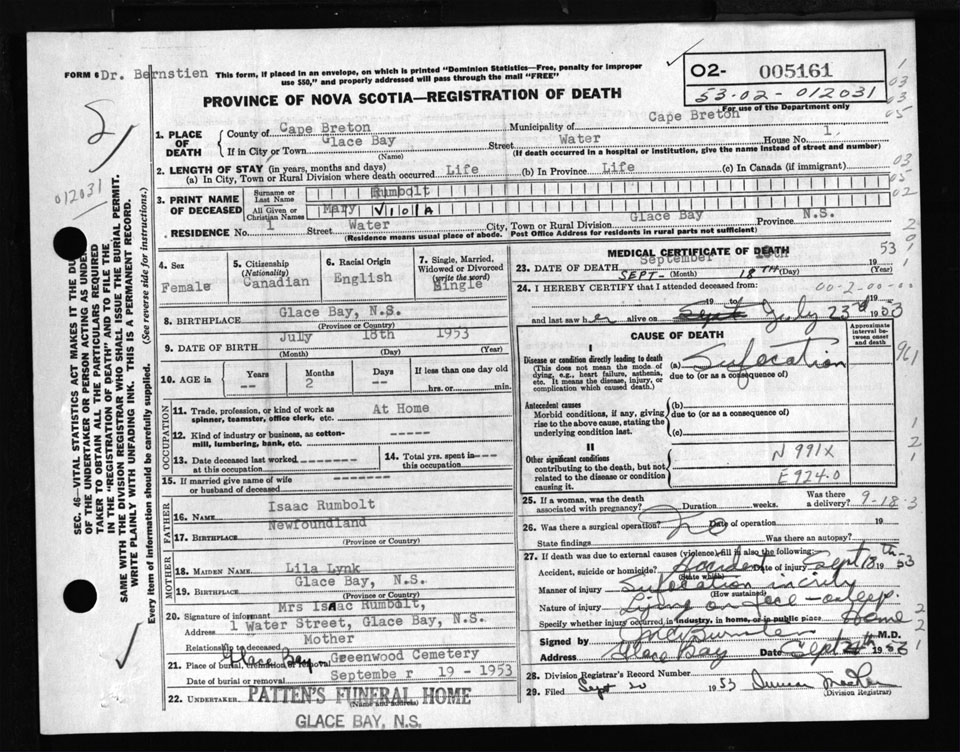 FORM 6 Dr. Bernstien This form, if placed in an envelope, on which is printed "Dominion Statistics—Free, penalty for improper use $50," and properly addressed will pass through the mail "FREE"
O2- 005161
53-02-012031
For use of the Department only
PROVINCE OF NOVA SCOTIA—REGISTRATION OF DEATH
012031
SEC. 46—VITAL STATISTICS ACT MAKES IT THE DU
OF THE UNDERTAKER OR PERSON ACTING AS UNDE
TAKER TO OBTAIN ALL THE PARTICULARS REQUIRED
IN THE "REGISTRATION OF DEATH" AND TO FILE THE
SAME WITH THE DIVISION REGISTRAR WHO SHALL ISSUE THE BURIAL PERMIT.
WRITE PLAINLY WITH UNFADING INK. THIS IS A PERMANENT RECORD.
Every item of Information should be carefully supplied. (See reverse side for instructions.)
1. PLACE OF DEATH
County of Cape Breton Municipality of Cape Breton
If in City or Town Glace Bay Street Water House No. 1.
(Name) (If death occurred in a hospital or institution, give the name instead of street and number)
2. LENGTH OF STAY (in years, months and days)
(a) In City, Town or Rural Division where death occurred Life (b) In Province Life (c) In Canada (if immigrant)
3. PRINT NAME OF DECEASED
Surname or Last Name Rumbolt
All Given or Christian Names Mary VIOlA
RESIDENCE No. 1 Street Water City, Town or Rural Division Glace Bay Province N.S.
(Residence means usual place of abode. Post Office Address for residents in rural parts not sufficient)
4. Sex Female
5. Citizenship (Nationality) Canadian
6. Racial Origin English
7. Single, Married, Widowed or Divorced (write the word) Single
8. BIRTHPLACE Glace Bay, N.S.
(Province or Country)
9. DATE OF BIRTH July 18th 1953
(Month) (Day) (Year)
10. AGE in Years -- Months 2 Days -- If less than one day old
hrs. or min.
OCCUPATION
11. Trade, profession, or kind of work as spinner, teamster, office clerk, etc. At Home
12. Kind of industry or business, as cotton-mill, lumbering, bank, etc. -----
13. Date deceased last worked at this occupation --------
14. Total yrs. spent in this occupation -----
15. If married give name of wife or husband of deceased
FATHER
16. Name Isaac Rumbolt
17. Birthplace Newfoundland
(Province or Country)
MOTHER
18. Maiden Name Lila Lynk
19. Birthplace Glace Bay, N.S.
(Province or Country)
20. Signature of informant Mrs Isaac Rumbolt,
Address 1 Water Street, Glace Bay, N.S.
Relationship to deceased Mother
21. Place of burial, cremation or removal Glace Bay Greenwood Cemetery
Date of burial or removal September 19 - 1953
22. UNDERTAKER PATTEN'S FUNERAL HOME
(Name and Address)
GLACE BAY, N.S.
MEDICAL CERTIFICATE OF DEATH
23. DATE OF DEATH September 18th 53
SEPT- (Month) 18TH (Day) 19 (Year)
24. I HEREBY CERTIFY that I attended deceased from: 00-2-00-00
19 to 19
and last saw her alive on Sept July 23rd 1953
CAUSE OF DEATH
Approximate interval between onset and death
I
Disease or condition directly leading to death (a) Sufocation
(This does not mean the mode of dying, e.g., heart failure, asthenia, etc. It means the disease, injury, or complication which caused death.)
due to (or as a consequence of)
Antecedent causes
Morbid conditions, if any, giving rise to the above cause, stating the underlying condition last.
(b)
due to (or as a consequence of)
(c)
II
Other significant conditions
contributing to the death, but not related to the disease or condition causing it.
N 991X
E 924.0
25. If a woman, was the death associated with pregnancy? Duration weeks. Was there a delivery? 9-18-3
26. Was there a surgical operation? no Date of operation 19
State findings Was there an autopsy?
27. If death was due to external causes (violence), fill in also the following:
Accident, suicide or homicide? Accident Date of injury Sept 18th 1953
(State which)
Manner of injury Sufocation in crib
(How sustained)
Nature of injury Lying on face - asleep.
Specify whether injury occurred in industry, in home, or in public place Home
Signed by M.D.
Address Glace Bay Date Sept 1953
28. Division Registrar's Record Number
29. Filed Sept 20 1953
(Division Registrar)